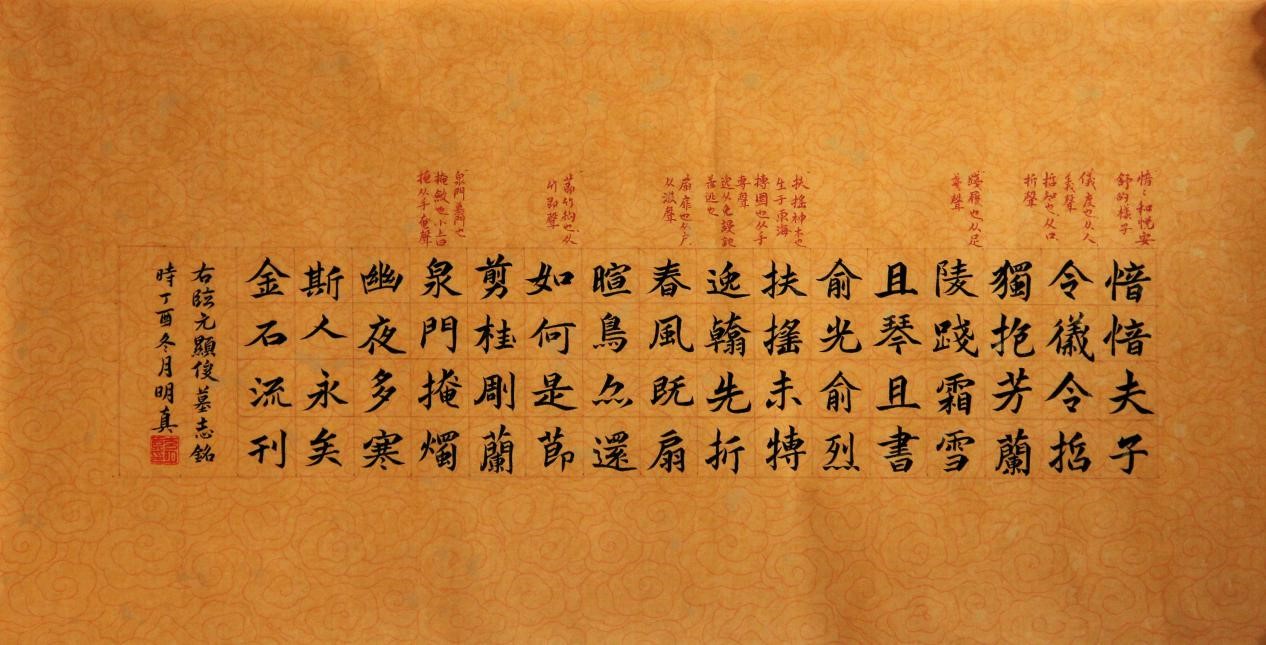 愔〻和悅安
舒的樣子
儀度也从人
義聲
哲知也从口
折聲
踐履也从足
戔聲
扶搖神木也
生于東海
摶圜也从手
專聲
逸从兔謾訑
善逃也
扇扉也从户
从翄聲
莭竹約也从
竹即聲
泉門墓門也
掩斂也小上曰
掩从手奄聲
愔愔夫子
令儀令哲
獨抱芳蘭
陵踐霜雪
且琴且書
俞光俞烈
扶搖未摶
逸翰先折
春風既扇
暄鳥亦還
如何是莭
剪桂剛蘭
泉門掩燭
幽夜多寒
斯人永矣
金石流刊
右臨元顯儁墓志銘
時丁酉冬月明真